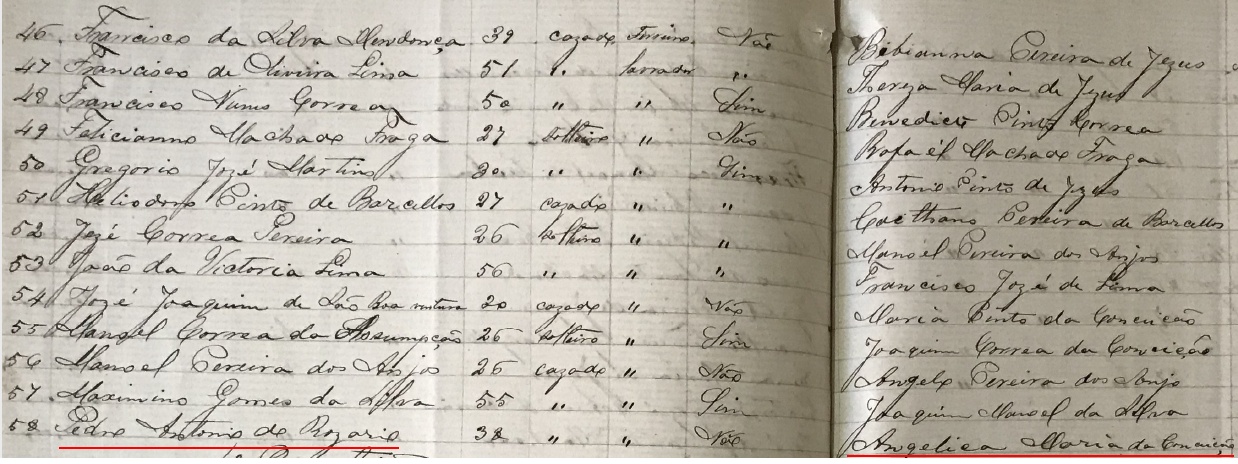 46. Francisco da Silva Mendonça 39 cazado Ferreiro. Não Bibianna Pereira de Jezus
47 Francisco de Oliveira Lima 51 " lavrador " Thereza Maria de Jezus
48 Francisco Nunes Correa 50 " " Sim Benedicto Pinto Correa
49 Felicianno Machado Fraga 27 solteiro " Não Rafaél Machado Fraga
50 Gregorio Jozé Martins 30 " " Sim Antonio Pinto de Jezus
51 Heliodoro Pinto de Barcellos 27 cazado " " Caethano Pereira de Barcellos
52 Jozé Correa Pereira 26 solteiro " " Manoel Pereira dos Anjos
53 João da Victoria Lima 56 " " " Francisco Jozé de Lima
54 Jozé Joaquim de São Boa ventura 20 cazado " Não Maria Pinto da Conceicão
55 Manoel Correa da Assumpção 26 solteiro " Sim Joaquim Correa da Conceição
56 Manoel Pereira dos Anjos 26 cazado " Não Angelo Pereira dos Anjo
57 Maximino Gomes da Silva 55 " " Sim Joaquim Manoel da Silva
58 Pedro Antonio do Rozario 38 " " Não Angelica Maria da Conceição